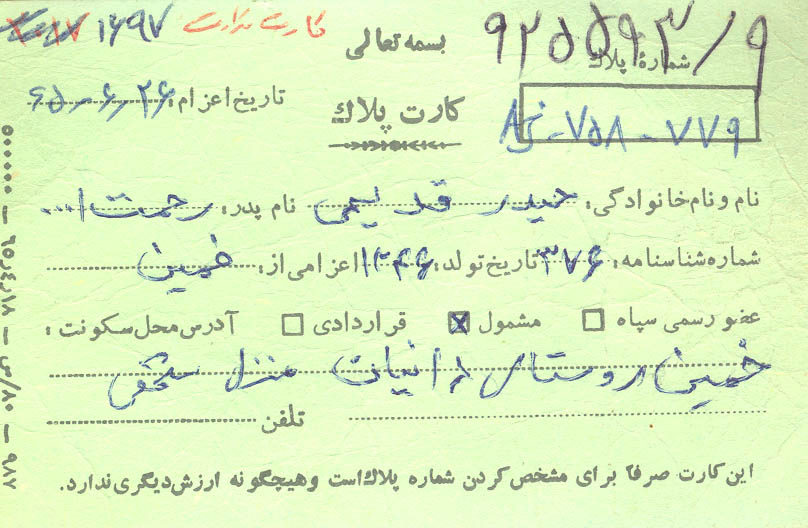 ۱۶۹۷ کارت
بسمه تعالی
شمارهٔ پلاک ۹۲۵۵۹۳/۹
تاریخ اعزام: ۶۵-۶-۲۶
کارت پلاک
۷۵۸-۷۷۹
نام و نام خانوادگی: حیدر قدیمی نام پدر: رحمت ا...
شماره شناسنامه: ۳۷۶ تاریخ تولد: ۱۳۴۶ اعزامی از: خمین
عضو رسمی سپاه □ مشمول ☒ قراردادی □ آدرس محل سکونت:
خمین روستای منزل شخصی
تلفن
این کارت صرفاً برای مشخص کردن شماره پلاک است و هیچگونه ارزش دیگری ندارد.
۵۰۰۰۰۰ — ۶۵٫۴٫۱۸ — ۸۰/س — ۹۸۲